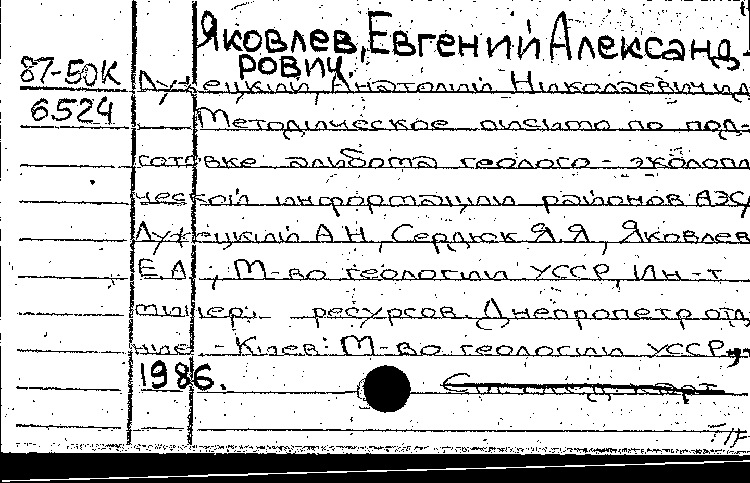 Яковлев, Евгений Александ-
рович.
87-50К
6524
Лужецкий, Анатолий Николаевич и д
Методическое письмо по под-
готовке альбома геолого-экологи
ческой информации районов АЭС/
Лужецкий А.Н., Сердюк Я.Я., Яковлев
Е.А.; М-во геологии УССР, Ин-т
минер. ресурсов. Днепропетр. отд
ние. - Киев: М-во геологии УССР,
1986.